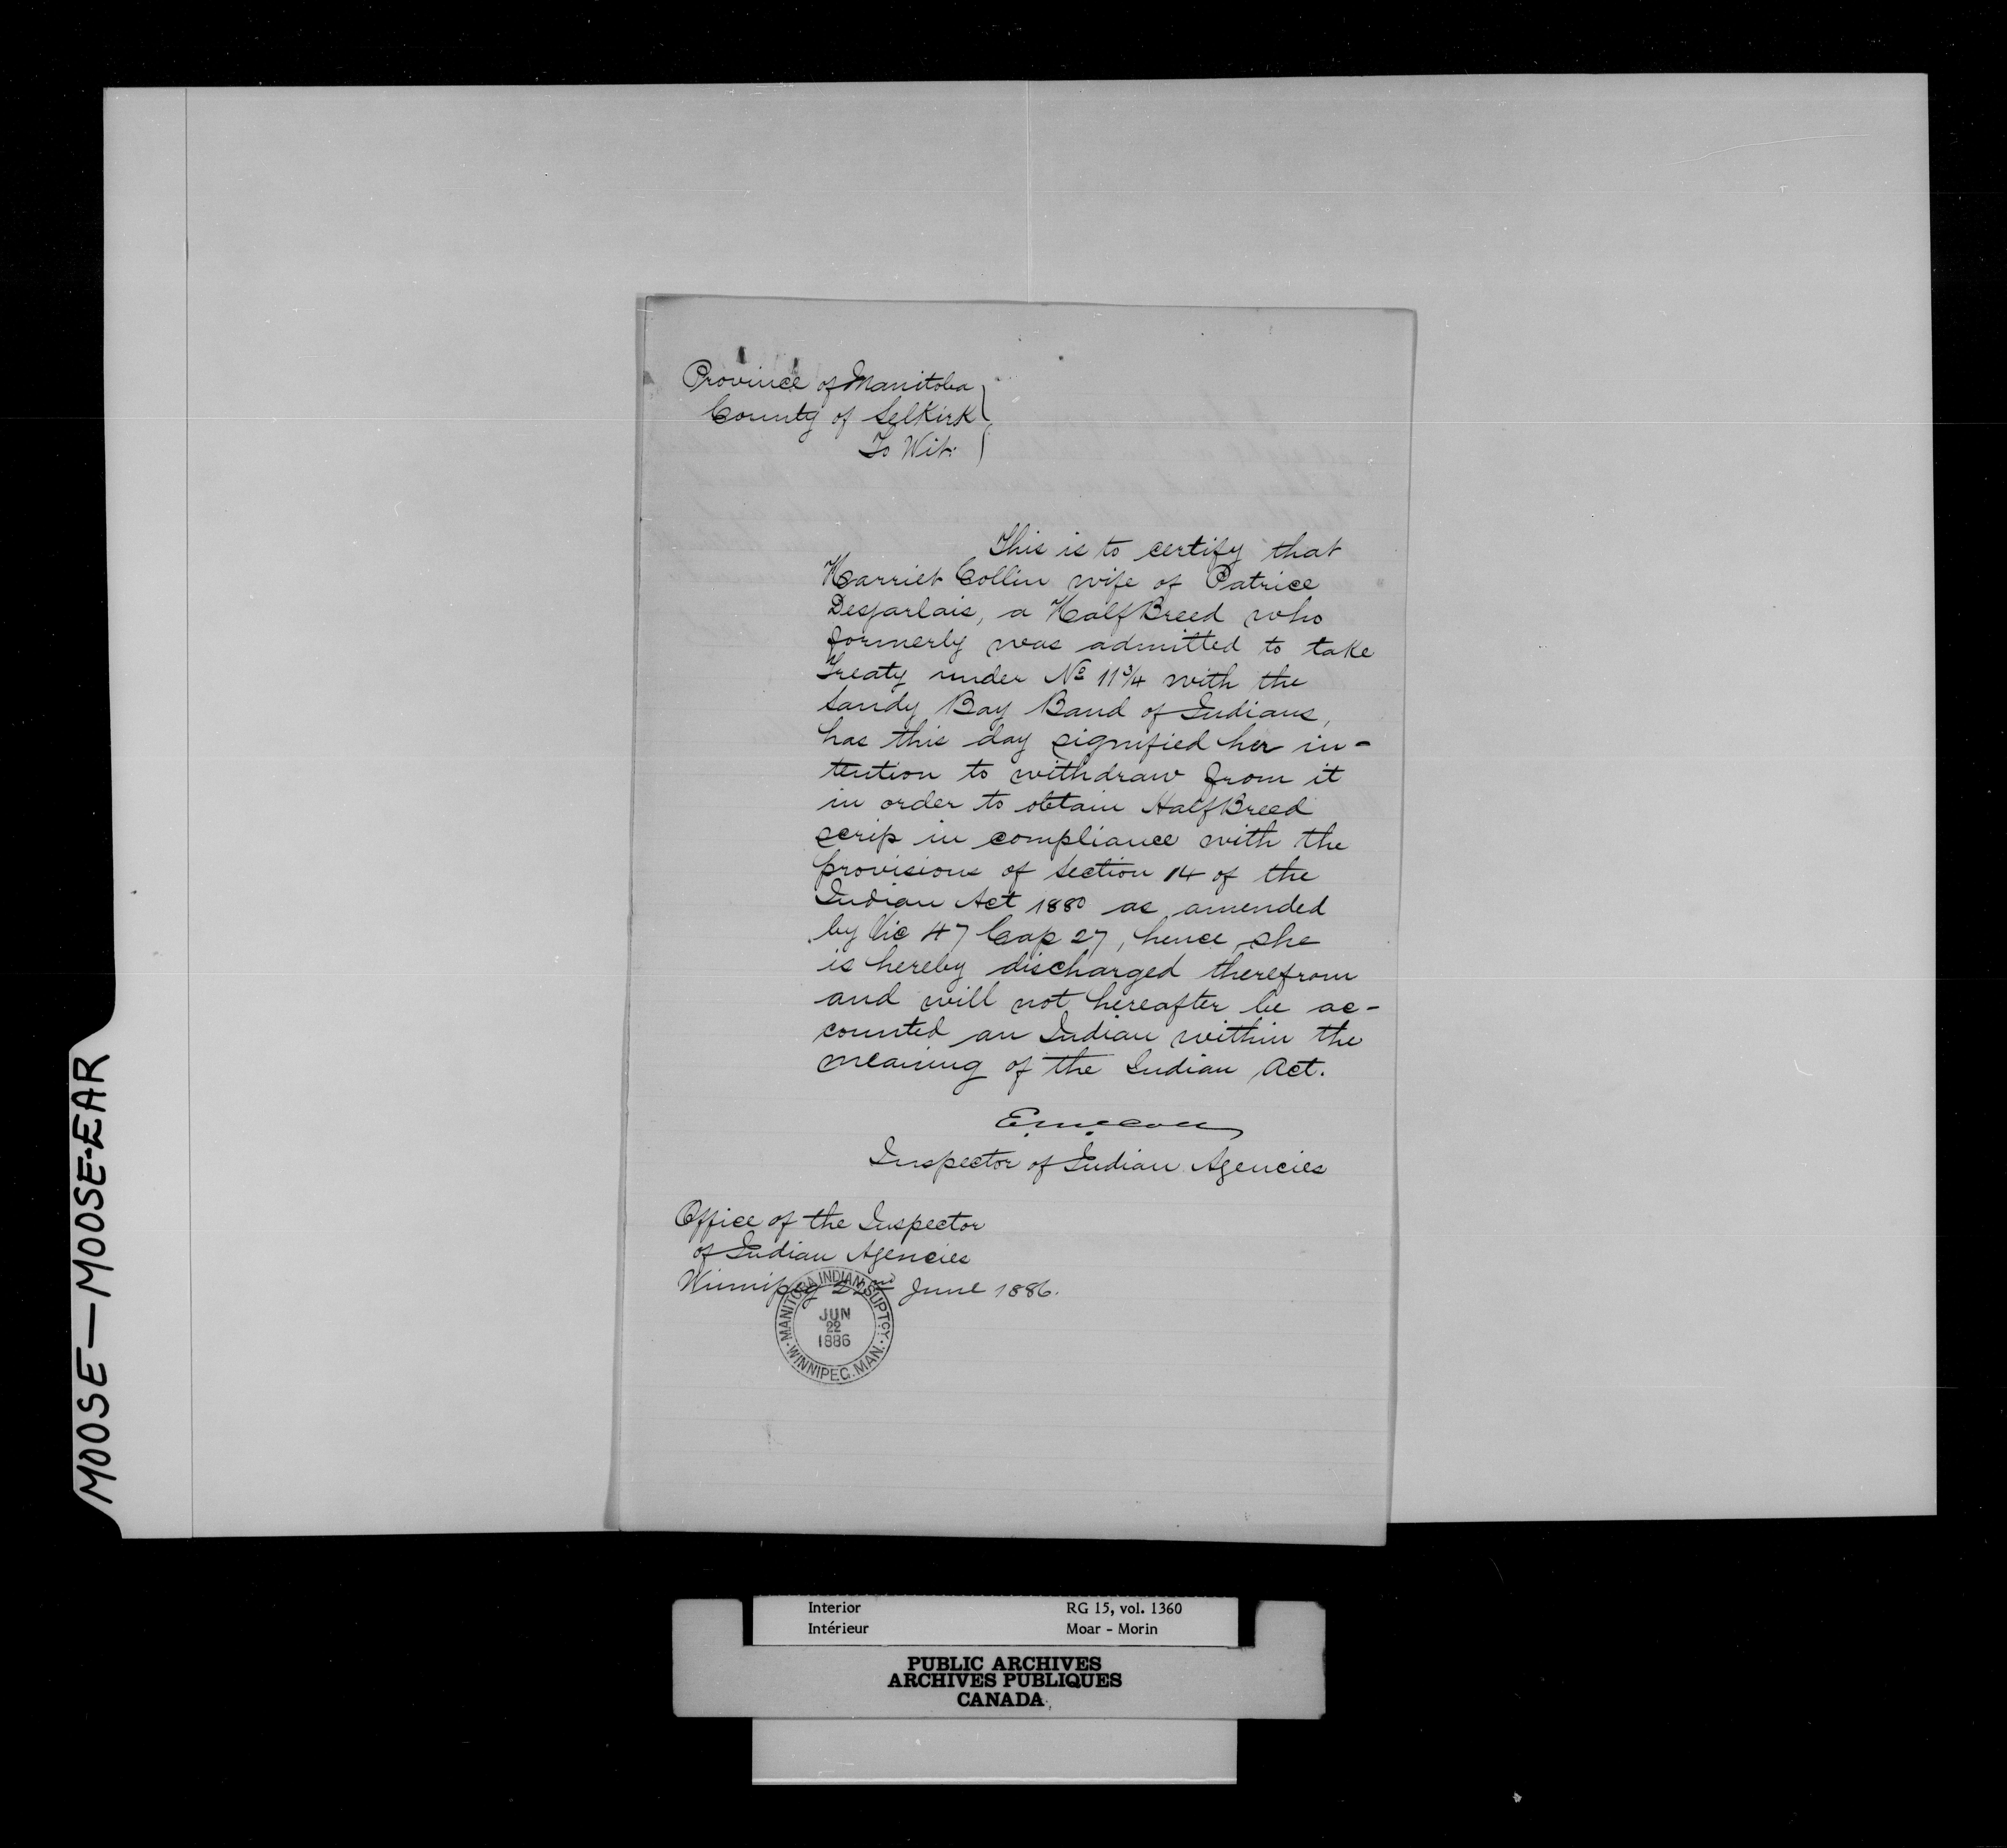 Province of Manitoba
County of Selkirk
To Wit:
This is to certify that
Harriet Collin wife of Patrice
Desjarlais, a HalfBreed who
formerly was admitted to take
Treaty under No 11¾ with the
Sandy Bay Band of Indians,
has this day signified her in-
tention to withdraw from it
in order to obtain HalfBreed
scrip in compliance with the
provisions of Section 14 of the
Indian Act 1880 as amended
by Vic 47 Cap 27, hence she
is hereby discharged therefrom
and will not hereafter be ac-
counted an Indian within the
meaning of the Indian Act.
E. McColl
Inspector of Indian Agencies
Office of the Inspector
of Indian Agencies
Winnipeg 22nd June 1886.
MANITOBA INDIAN SUPTCY.
JUN
22
1886
WINNIPEG. MAN.
MOOSE — MOOSE-EAR
Interior RG 15, vol. 1360
Intérieur Moar - Morin
PUBLIC ARCHIVES
ARCHIVES PUBLIQUES
CANADA